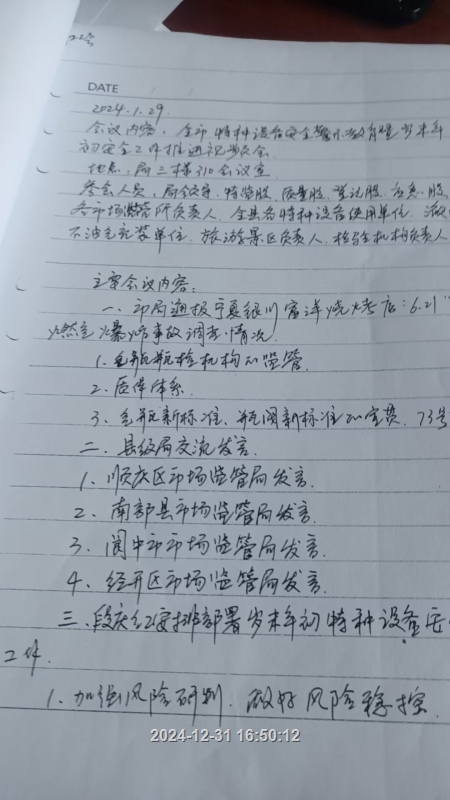 DATE
2024.1.29.
会议内容：全市特种设备安全警示教育暨岁末年
初安全工作推进视频会
地点：局三楼310会议室
参会人员：局领导、特监股、质量股、登记股、应急股
各市场监管所负责人、全县各特种设备使用单位、液
充装单位、旅游景区负责人、检验机构负责人
主要会议内容：
一、市局通报宁夏银川富洋烧烤店：6.21
燃气爆炸事故调查情况
1、气瓶瓶检机构和监管.
2、质保体系.
3、气瓶新标准、瓶阀新标准和宣贯. 73号
二、县级局交流发言.
1、顺庆区市场监管局发言.
2、南部县市场监管局发言.
3、阆中市市场监管局发言.
4、经开区市场监管局发言.
三、段庆红安排部署岁末年初特种设备安
工作.
1、加强风险研判、做好风险稳控.
2024-12-31 16:50:12